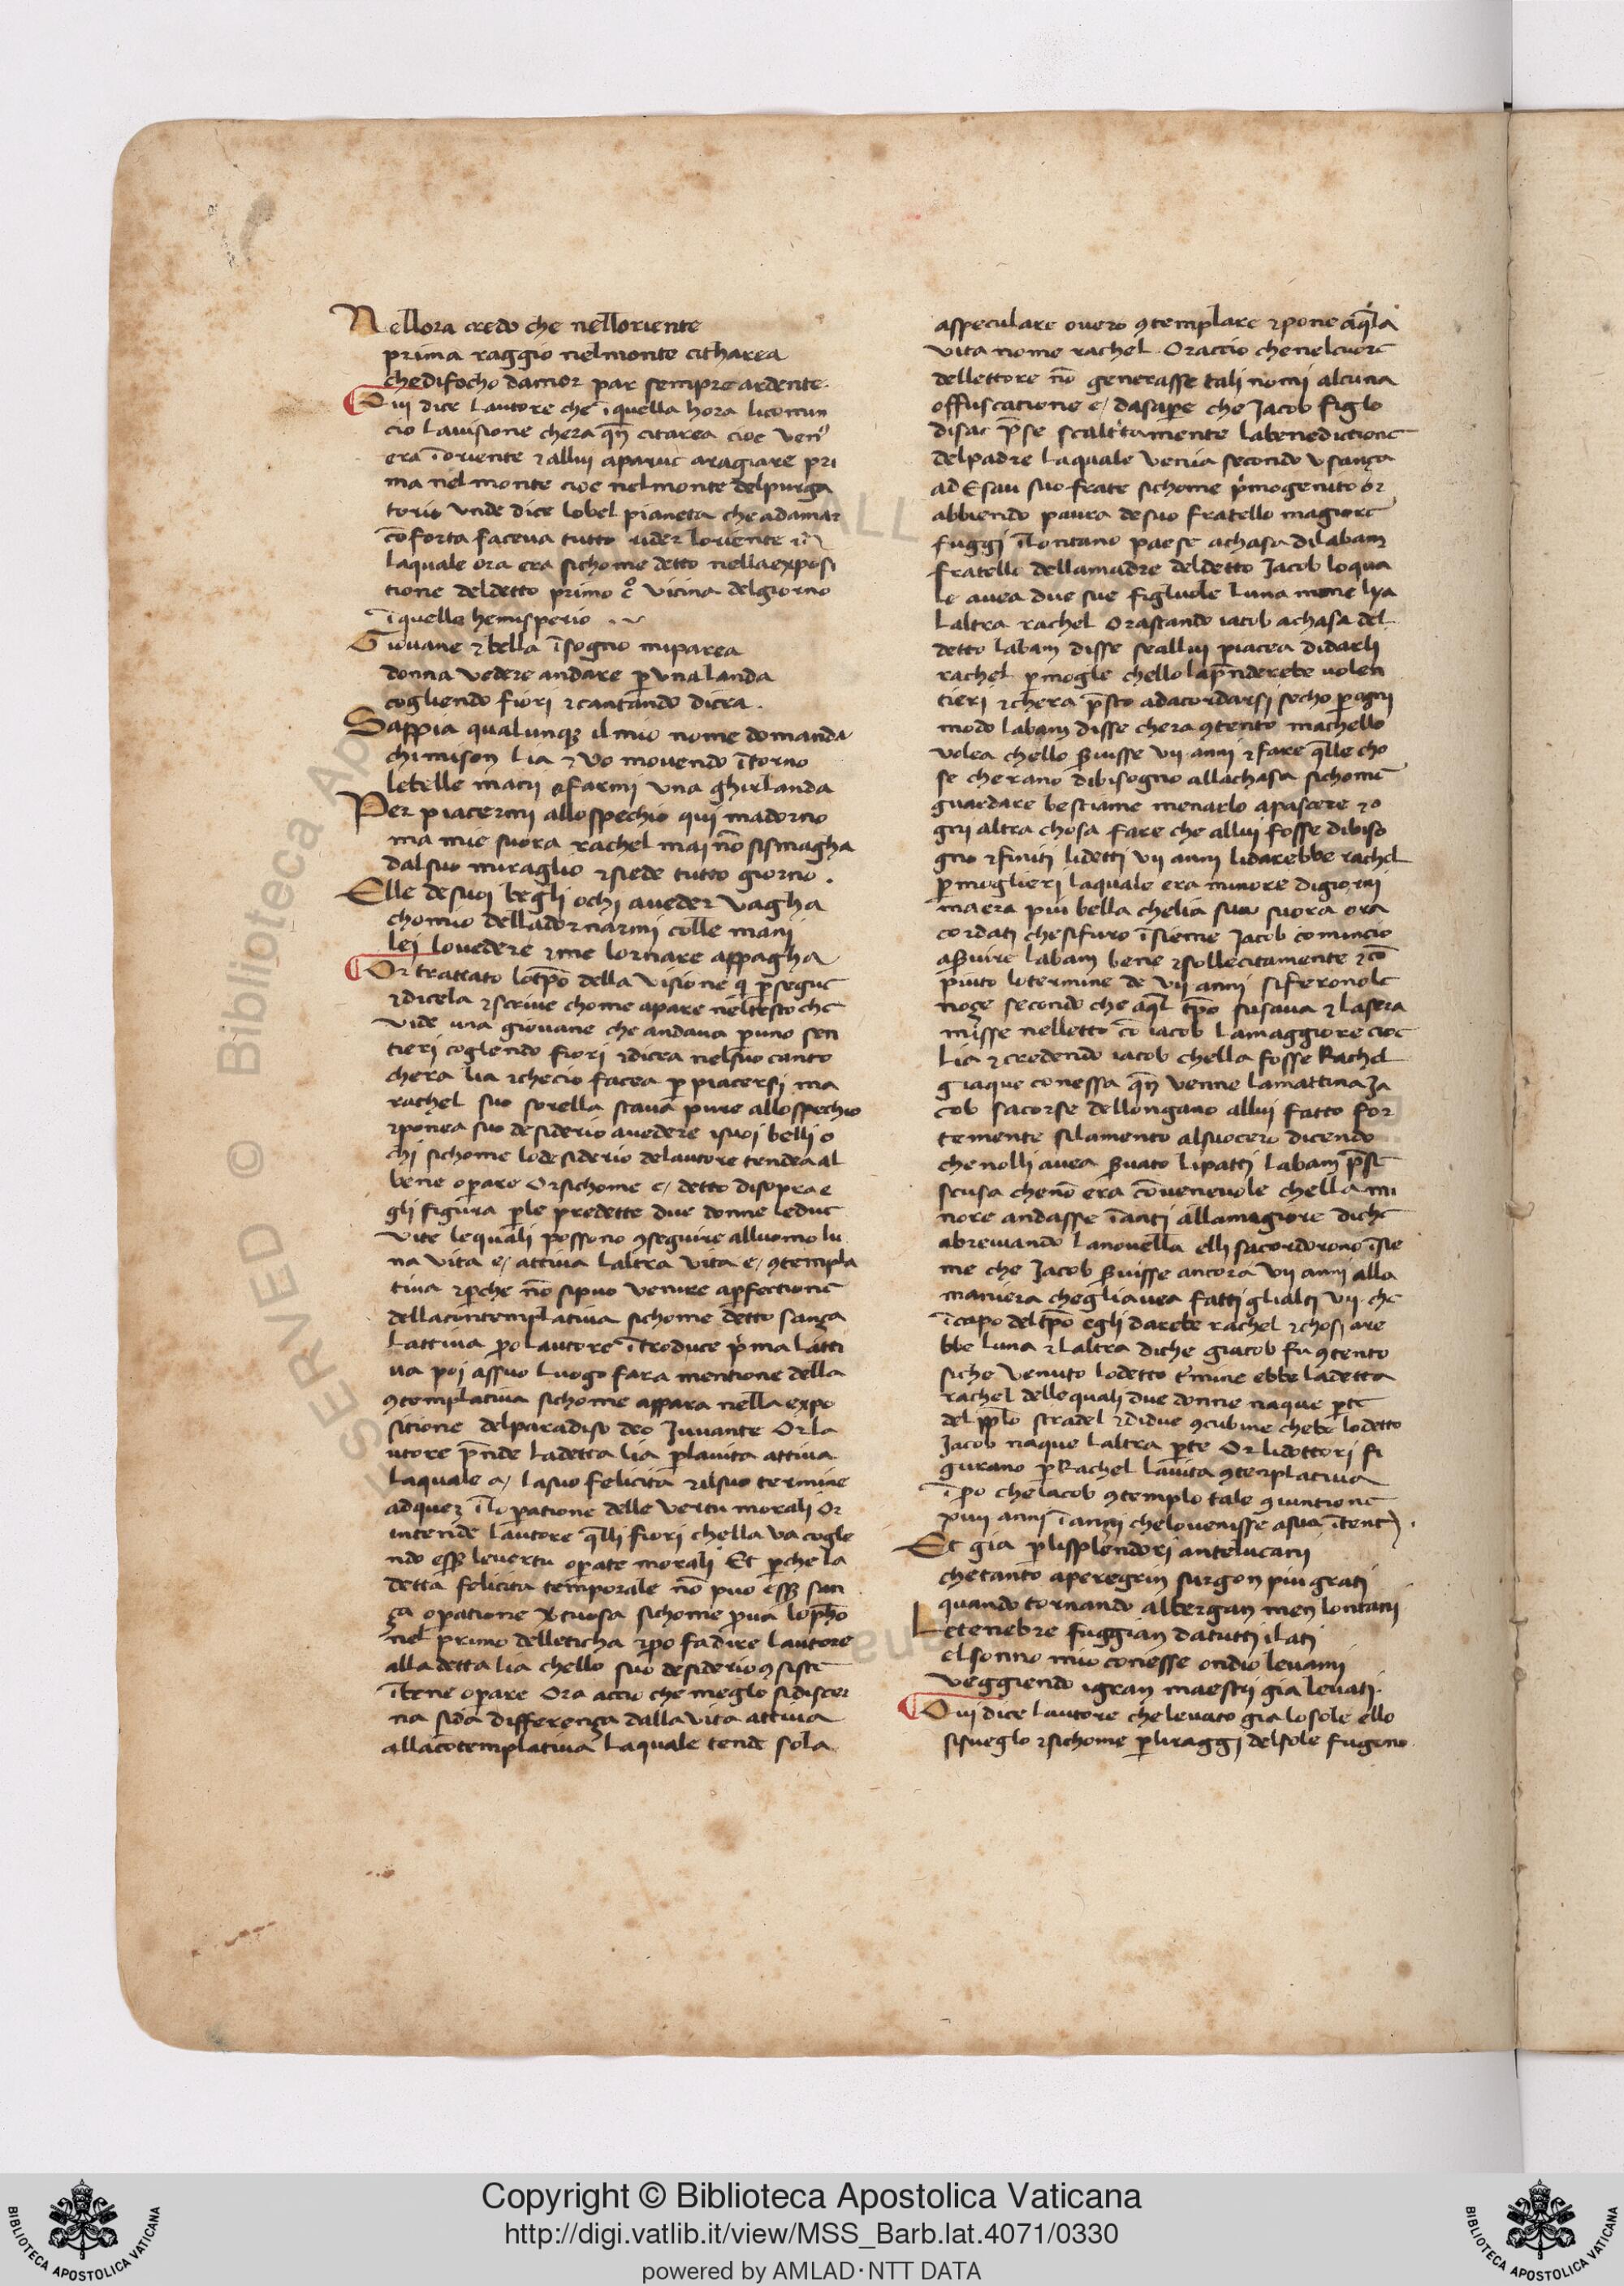 Nellora credo che nelloriente
prima raggio nelmonte citharea
chedifocho damor par sempre ardente.
Qui dice lautore che ī quella hora licomin
cio lauisione chera qn̄ citarea cioe ven
era ī oriente ⁊ allui aparue aragiare pri
ma nel monte cioe nelmonte delpurga
torio vnde dice lobel pianeta che adamar
cōforta faceua tutto rider loriente ⁊ī
laquale ora era sichome detto nellaexposi
tione deldetto primo c̊ vicina delgiorno
ī quello hemisperio
Giouane ⁊ bella ī sogno miparea
donna vedere andare ꝑ vna landa
cogliendo fiori ⁊ cantando dicea.
Sappia qualunqꝫ il mio nome domanda
chimison lia ⁊ vo mouendo ītorno
lebelle mani a farmi vna ghirlanda
Per piacermi allospechio qui madorno
ma mie suora rachel mai nō sismagha
dalsuo miraglio ⁊ siede tutto giorno.
Elle desuoi begli ochi aueder vagha
chomio delladornarmi colle mani
lei louedere ⁊ me lornare appagha
Or trattato lo tꝑo della visione qͥ ꝓsegue
⁊ dicela ⁊ scriue chome apare neltesto che
vide una giouane che andaua ꝑ uno sen
tieri coglendo fiori ⁊ dicea nelsuo canto
chera lia ⁊ checio facea ꝑ piacersi ma
rachel suo sorella staua pure allospechio
⁊ ponea suo desiderio auedere isuoi belli o
chi sichome lodesiderio delautore tendea al
bene oꝑare Orsichome e/ detto disopra e
gli figura ꝑ le predette due donne ledue
vite lequali possono ꝯseguire alluomo lu
na vita e/ attiua laltra vita e/ ꝯtempla
tiua ⁊ ꝑche nō sipuo venire aꝑfectione
dellacontemplatiua sichome detto sança
lattiua ꝑo lautore ītroduce pͥma latti
ua poi assuo luogo fara mentione della
ꝯtemplatiua sichome appara nella expo
sitione delparadiso deo Iuuante Or la
utore p̄nde ladetta lia ꝑ lauita attiua
laquale a/ lasuo felicita ⁊ ilsuo termine
adqueꝫ ī lo ꝑatione delle vertu morali Or
intende lautore q̄lli fiori chella va cogle
ndo esser̄ leuertu oꝑate morali Et ꝑche la
detta felicita temporale nō puo esser̄ san
ça oꝑatione v̄tuosa sichome proua lo ph̄o
nel primo delleticha ⁊ ꝑo fadire lautore
alla detta lia chello suo desiderio ꝯsiste
ī bene oꝑare Ora accio che meglo sidiscer
na sida differença dalla vita attiua
allacōtemplatiua laquale tende sola
asspeculare ouero ꝯtemplare ⁊ pone aq̄lla
vita nome rachel. Oraccio chenelcuore
dellettore nō generasse tali nomi alcuna
offuscatione e/ dasaꝑe che Jacob figlo
disac p̄se scaltritamente labenedictione
delpadre laquale venia secondo vsança
ad Esau suo frate sichome pͥmogenito or
abbiendo paura desuo fratello magiore
fuggi ī lontano paese achasa dilabam
fratello dellamadre deldetto Jacob loqua
le auea due sue figluole luna nome lya
laltra rachel Orastando iacob achasa del
detto labam disse seallui piacea didarli
rachel ꝑ mogle chello lap̄nderebe uolen
tieri ⁊ chera p̄sto adacordarsi secho ꝑ ogni
modo labam disse chera ꝯtento machello
volea chello ẜuisse vij anni ⁊ fare q̄lle cho
se cherano dibisogno allachasa sichome
guardare bestiame menarlo apascere ⁊ o
gni altra chosa fare che allui fosse dibiso
gno ⁊ finiti lidetti vij anni lidarebbe rachel
ꝑ moglieri laquale era minore digiorni
ma era piu bella chelia sua suora ora
cordati chesifuro īsieme Jacob comincio
aẜuire labam bene ⁊ sollecitamente ⁊ cō
piuto lotermine de vij anni siferonole
noze secondo che aq̄l tꝑo susaua ⁊ lasera
misse nelletto cō iacob lamaggiore cioe
lia ⁊ credendo iacob chella fosse Rachel
giaque conessa qn̄ venne lamattina Ja
cob sacorse dellongano allui fatto for
temente silamento alsuocero dicendo
che nolli auea ẜuato lipatti labam p̄se
scusa chenō era cōueneuole chella mi
nore andasse īanti allamagiore diche
abreuiando lanouella elli sacordorono īsie
me che Jacob ẜuisse ancora vij anni alla
maniera chegliauea fatti glialti vij che
ī capo deltꝑo egli darebe rachel ⁊ chosi are
bbe luna ⁊ laltra diche giacob fu ꝯtento
siche venuto lodetto t̄mine ebbe ladetta
rachel dellequali due donne naque ꝑte
del ppl̄o stradel ⁊ didue ꝯcubine chebe lodetto
Jacob naque laltra ꝑte Or lidottori fi
gurano ꝑ Rachel lauita ꝯtemplatiua
ī ꝑo cheiacob ꝯtemplo tale ꝯiuntione
xiiij anni īanzi chelouenisse asua ītent.
Et gia ꝑ lisplendori antelucani
chetanto aperegrin surgon piu grati
quando tornando albergan men lontani
Letenebre fuggian datutti ilati
elsonno mio conesse ondio leuami
veggiendo igran maestri gia leuati.
Qui dice lautore cheleuato gia losole ello
sisueglo ⁊ sichome ꝑ liraggi delsole fugono
Copyright © Biblioteca Apostolica Vaticana
http://digi.vatlib.it/view/MSS_Barb.lat.4071/0330
powered by AMLAD·NTT DATA
BIBLIOTECA APOSTOLICA VATICANA
BIBLIOTECA APOSTOLICA VATICANA